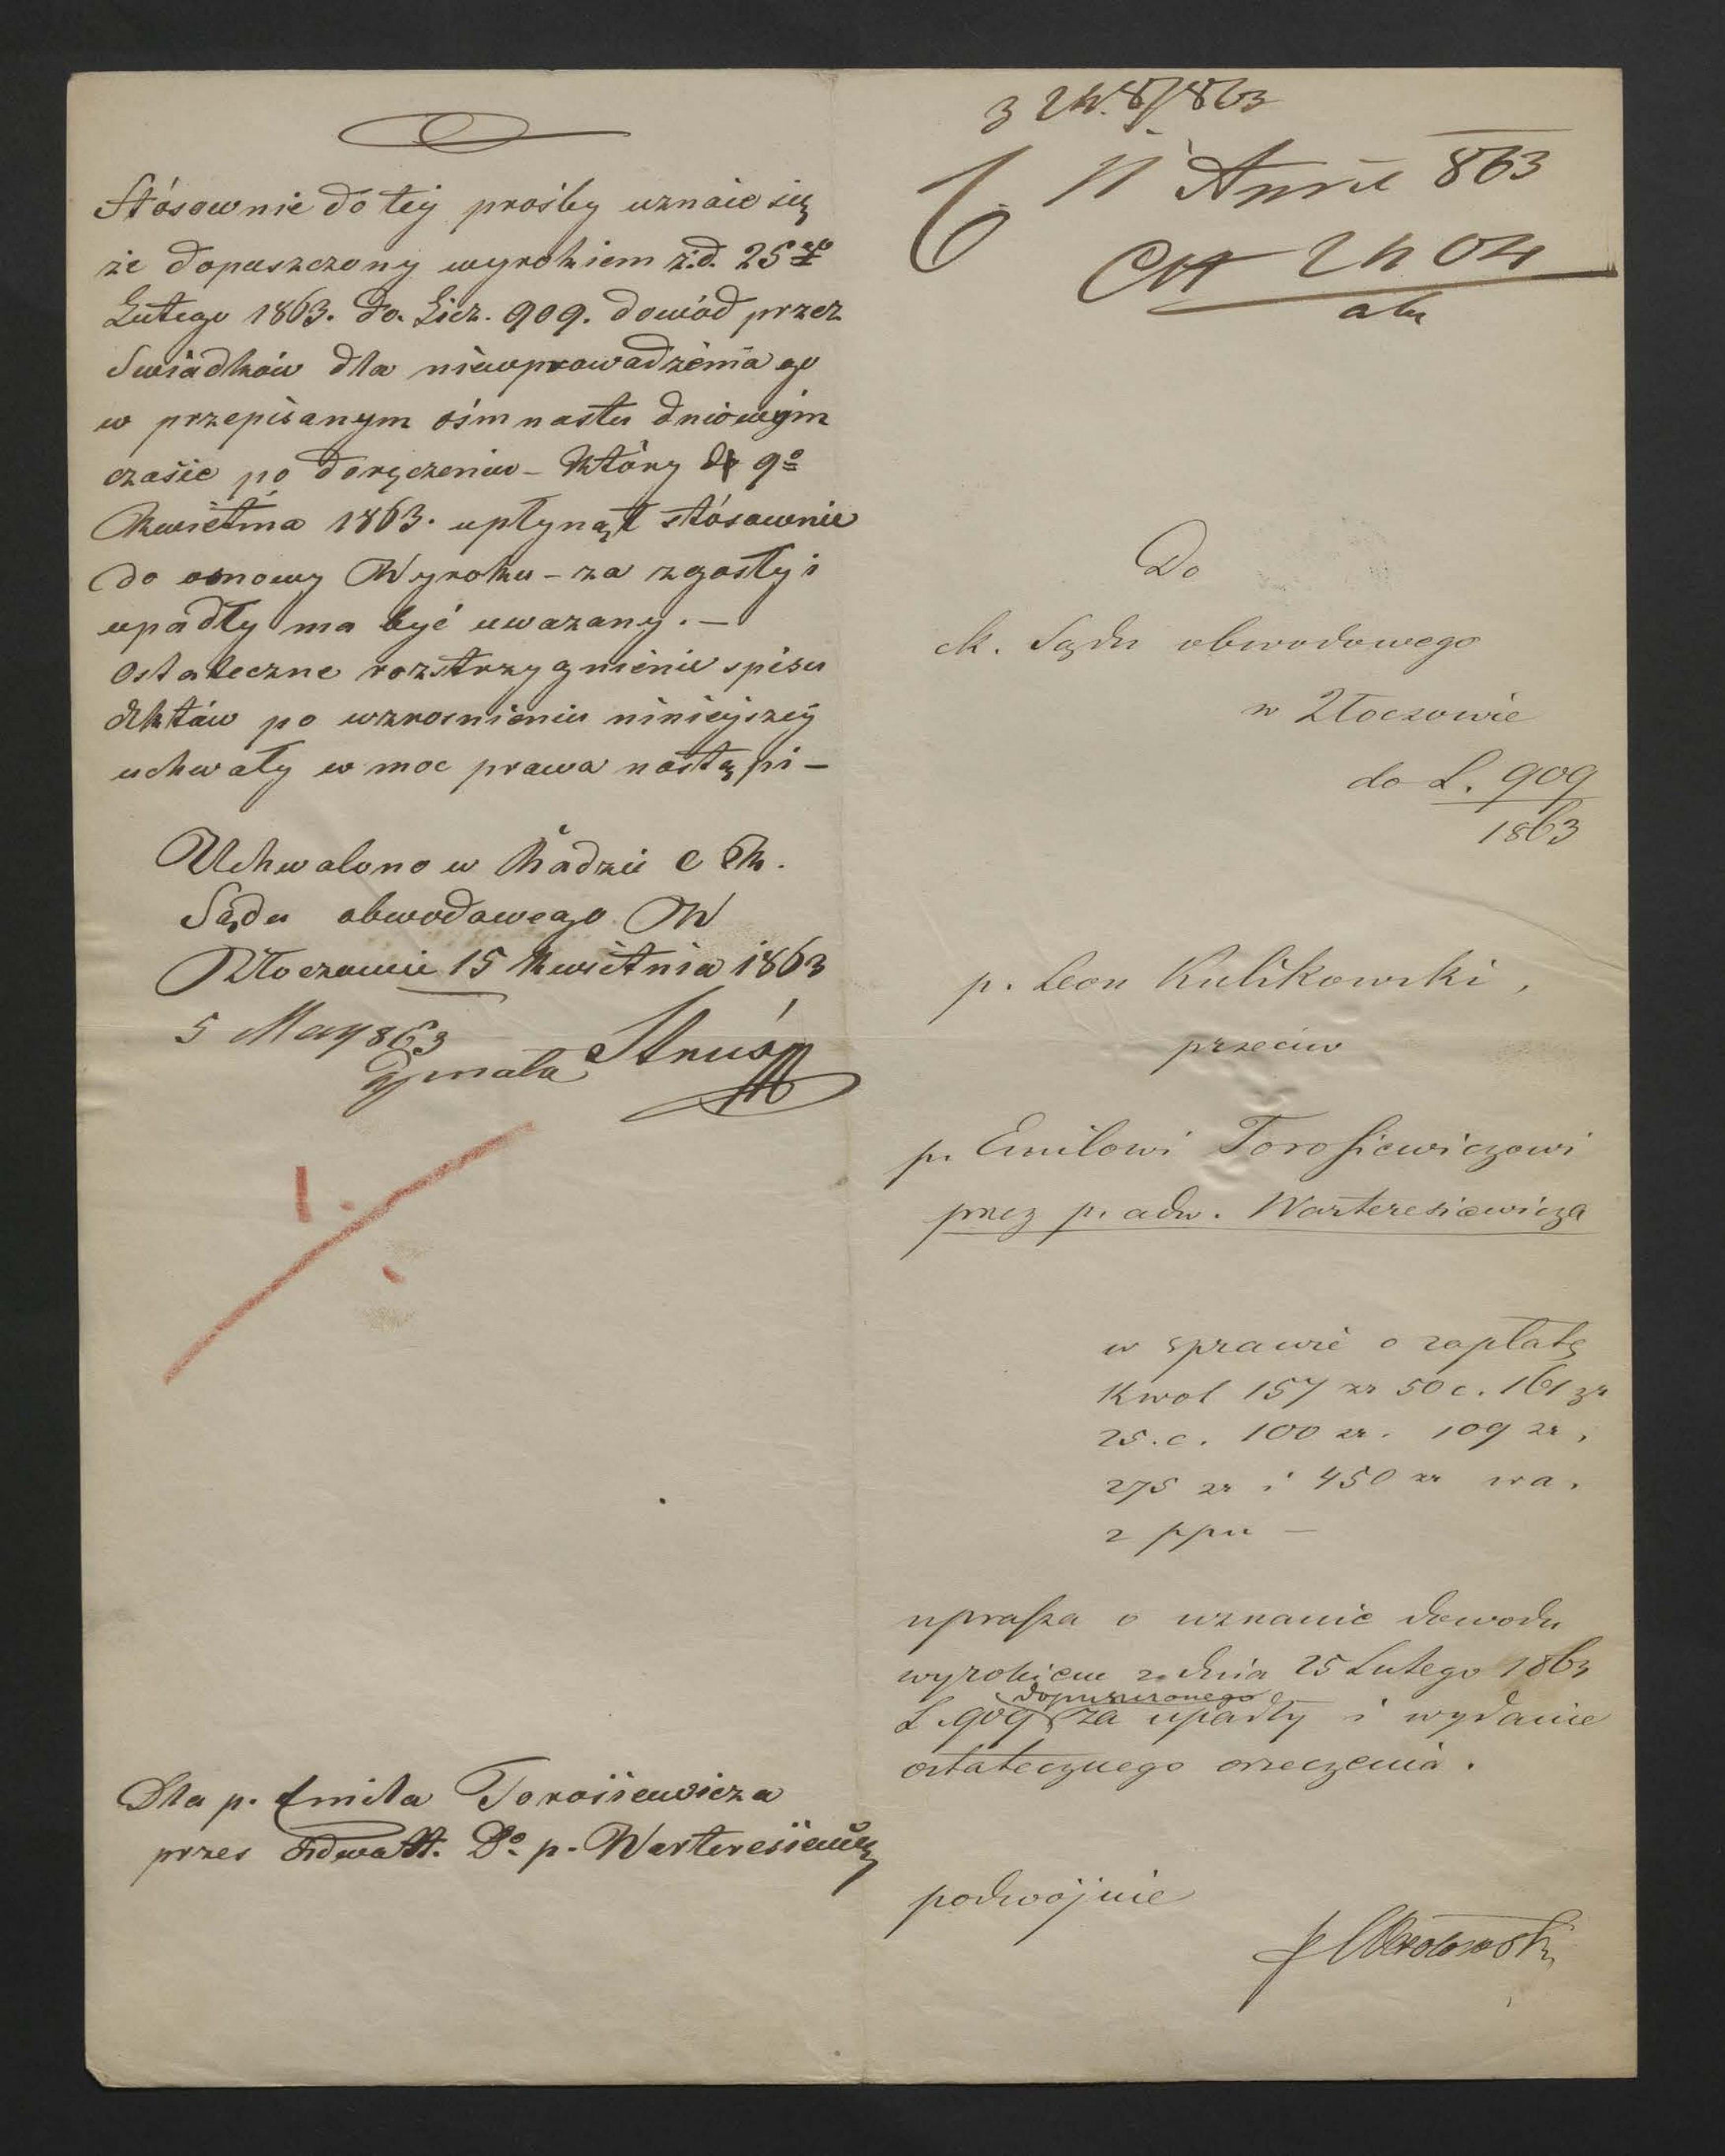 Stósownie do tej prośby uznaie się
że dopuszczony wyrokiem z.d. 25go
Lutego 1863. do. Licz. 909. dowód przez
Swiadków dla nieuprowadzenia go
w przepisanym ośmnastu dniowym
czasie po doręczeniu – który 9o
Kwietnia 1863. upłynął stósownie
do osnowy Wyroku – za zgasły i
upadły ma być uwazany. –
Ostateczne rozstrzygnienie spisu
Aktów po wzrosnieniu niniejszej
uchwały w moc prawa nastąpi –
Uchwalono w Radzie C K.
Sądu obwodowego W
Złoczowie 15 Kwietnia 1863
5 May 863
1.
Dla p. Emila Torosiewicza
przes Adwatt. Do p. Warteresiewicz
863
11 April 863
2404
Do
ck. Sądu obwodowego
w Złoczowie
do L. 909
1863
p. Leon Kulikowski,
przeciw
p. Emilowi Torosiewiczowi
przez p. adw. Warteresiewicza
w sprawie o zapłatę
kwot 157 zr 50 c. 161 zr
25. c. 100 zr. 109 zr,
275 zr i 450 zr wa.
z ppn –
uprasza o uznanie dowodu
wyrokiem z dnia 25 Lutego 1863
L. 909 dopuszczonego za upadły i wydanie
ostatecznego orzeczenia.
podwójnie